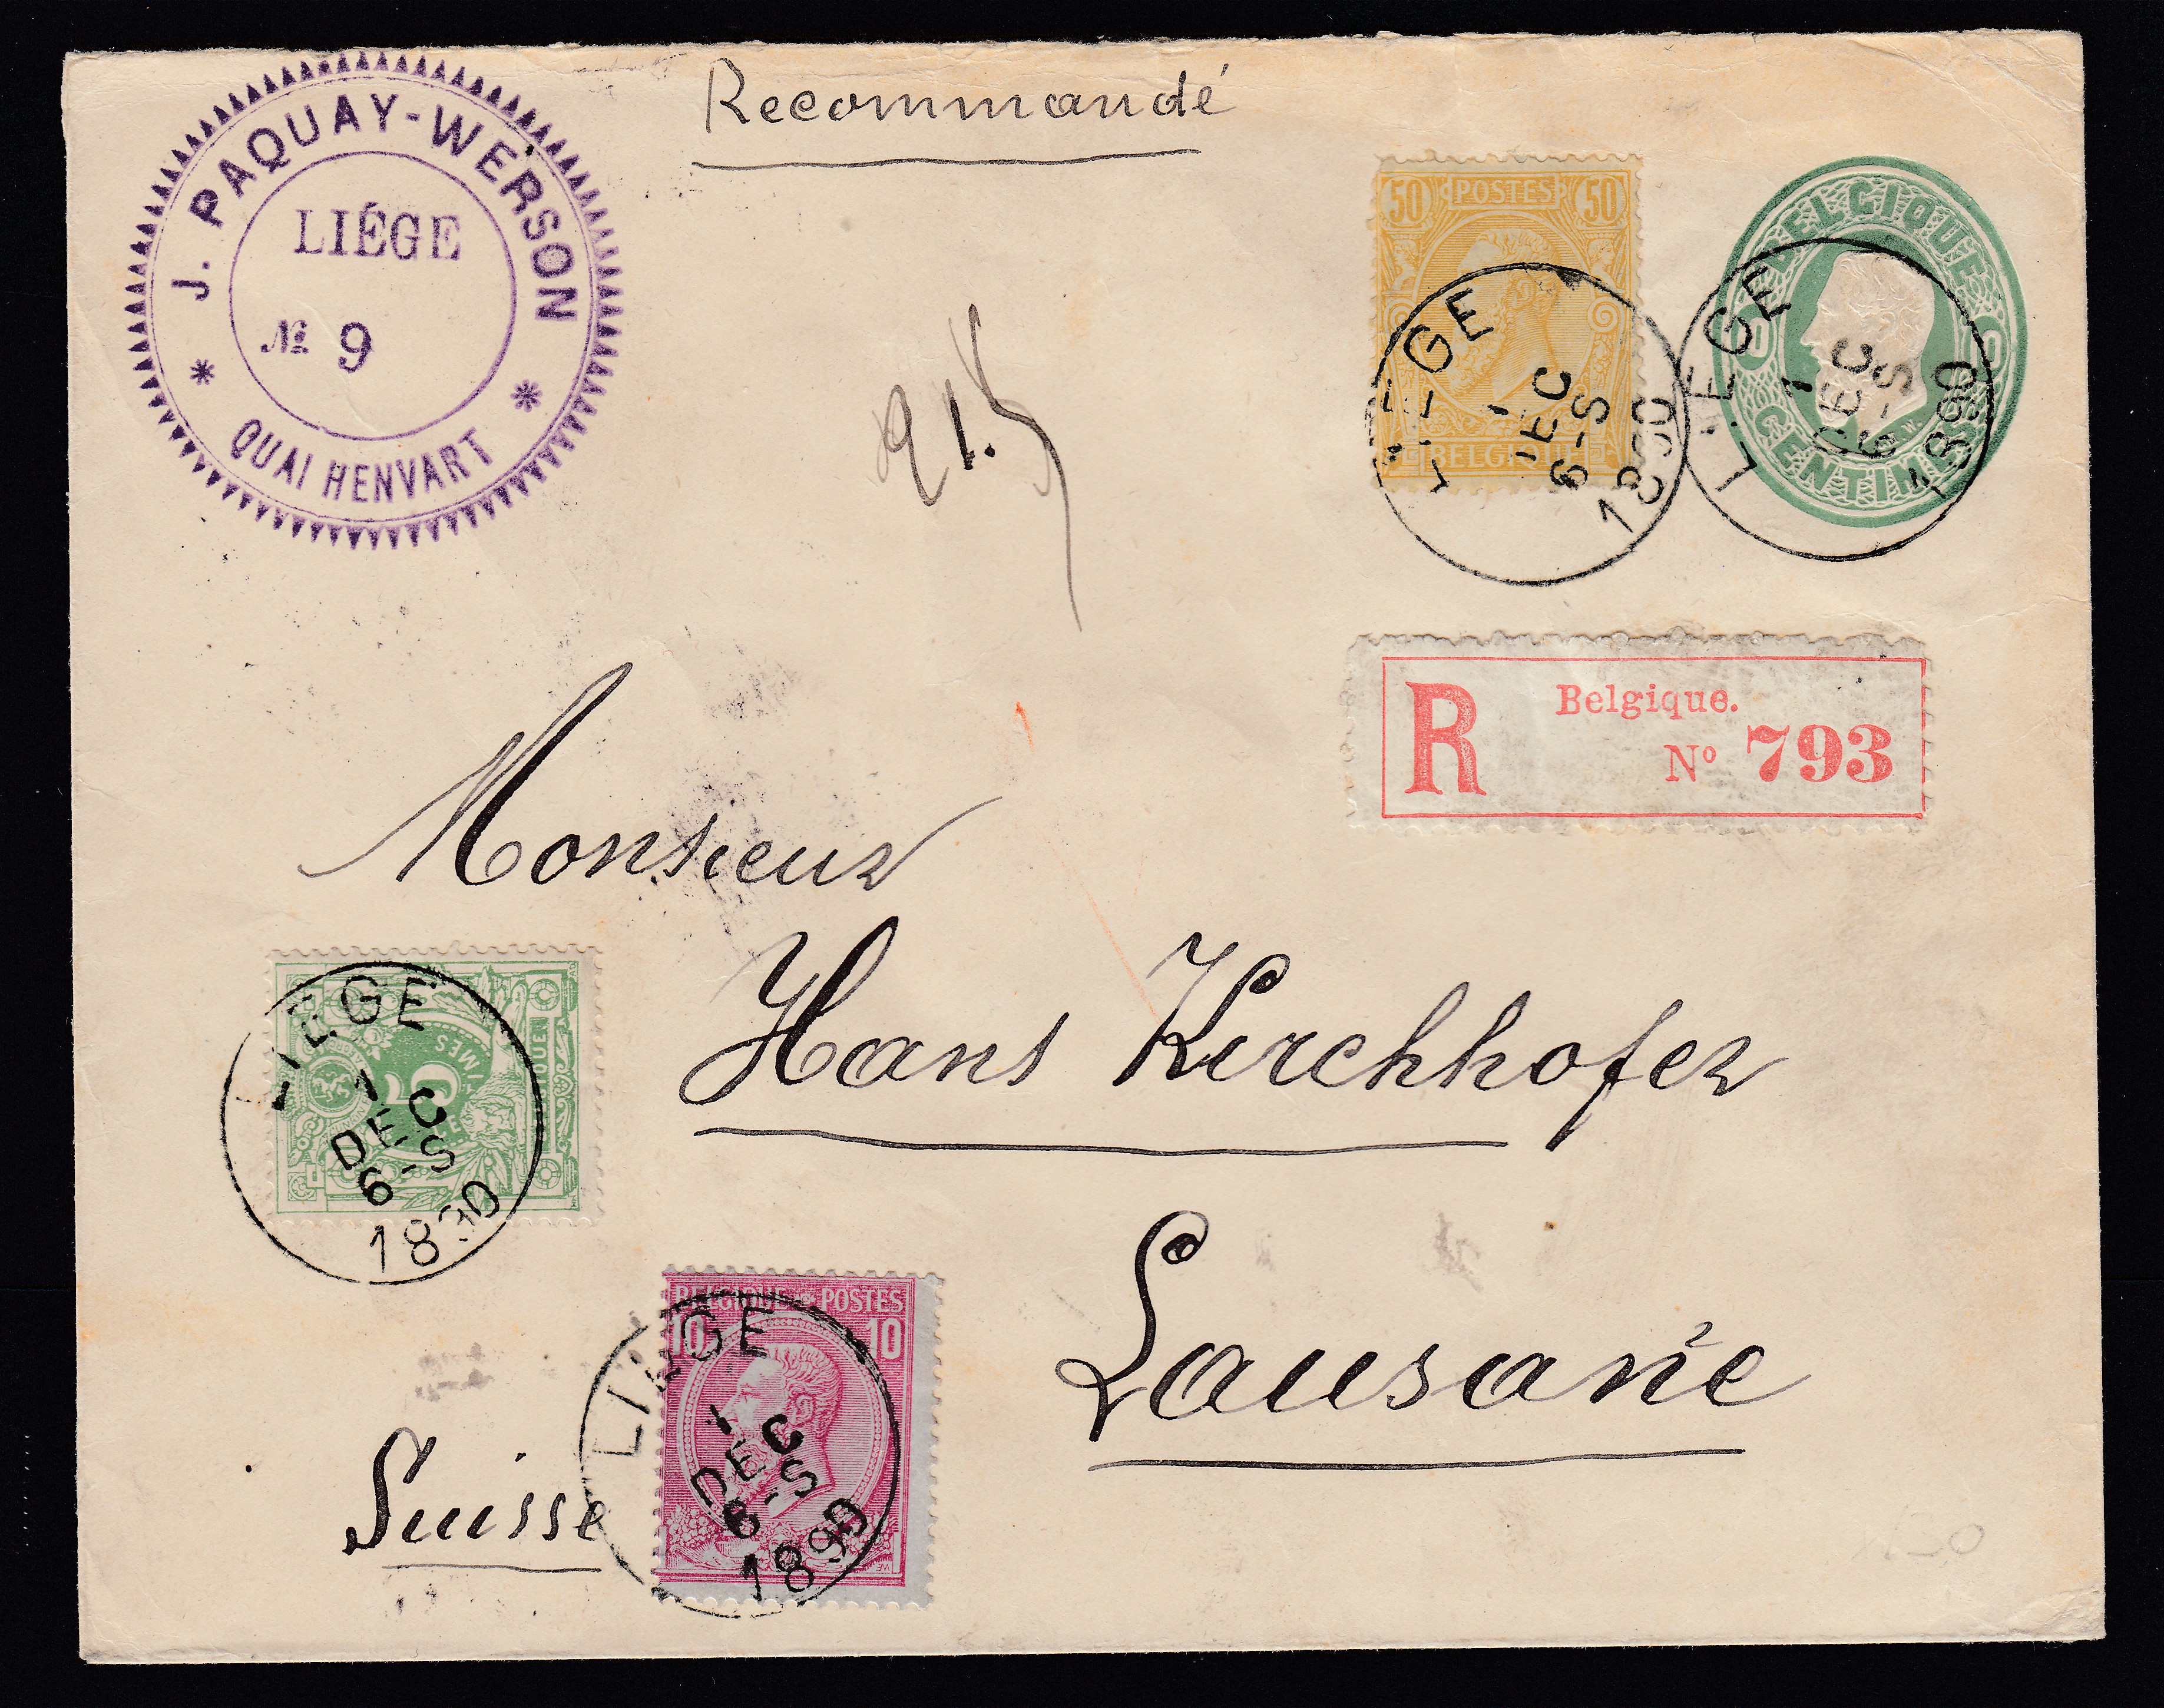 Recommandé
J. PAQUAY-WERSON
LIÉGE
№ 9
* QUAI HENVART *
50 POSTES 50
BELGIQUE
LIEGE
1
DEC
6-S
1890
BELGIQUE
CENTIMES
LIEGE
1
DEC
6-S
1890
R Belgique.
Nº 793
Monsieur
Hans Kirchhofer
Lausane
Suisse
5
LIEGE
1
DEC
6-S
1890
BELGIQUE POSTES
10 10
LIEGE
1
DEC
6-S
1890